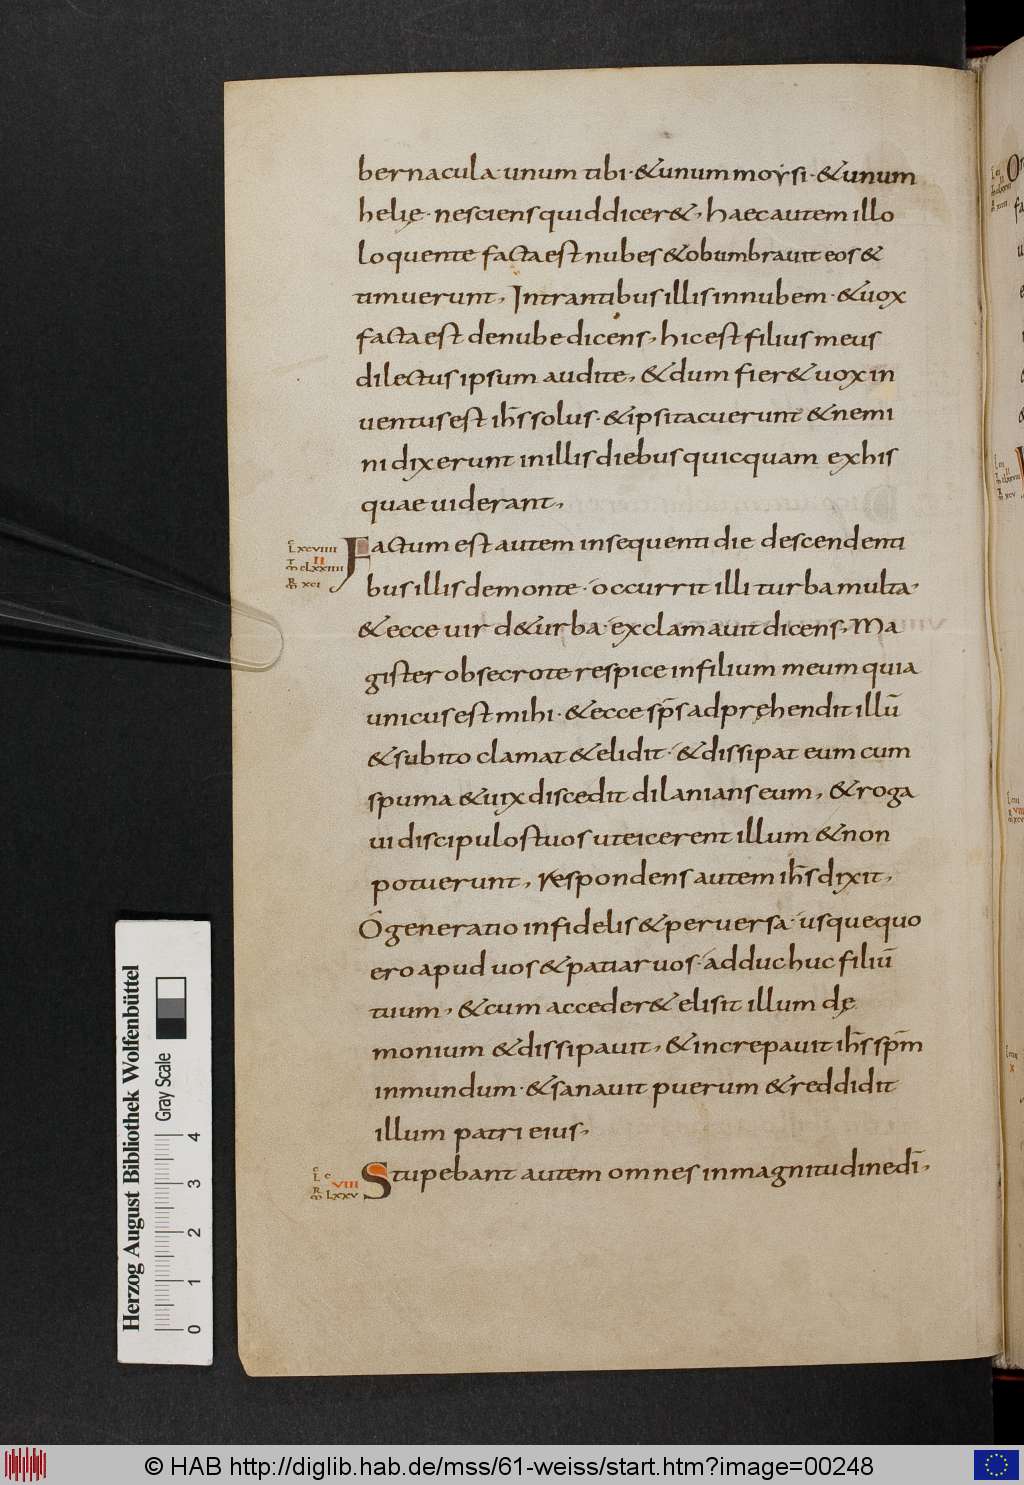 bernacula unum tibi · & unum moysi · & unum
helię · nesciens quid dicer& , haec autem illo
loquente facta est nubes & obumbravit eos &
timuerunt , Intrantibus illis in nubem · & uox
facta est de nube dicens , hic est filius meus
dilectus ipsum audite , & dum fier& uox in
uentus est ih̅s solus · & ipsi tacuerunt & nemi
ni dixerunt in illis diebus quicquam ex his
quae uiderant ,
L xcviiii
II
m cLxxiiii
m xci
Factum est autem in sequenti die descendenti
bus illis de monte · occurrit illi turba multa ·
& ecce uir d& urba · exclamauit dicens , Ma
gister obsecro te respice in filium meum quia
unicus est mihi · & ecce sp̅s adpręhendit illu̅
& subito clamat & elidit · & dissipat eum cum
spuma & uix discedit dilanians eum , & roga
ui discipulos tuos ut eicerent illum & non
potuerunt , Respondens autem ih̅s dixit ,
O generatio infidelis & peruersa · usquequo
ero apud uos & patiar uos · adduc huc filiu̅
tuum , & cum acceder& elisit illum dę
monium & dissipauit , & increpauit ih̅s sp̅m
inmundum · & sanauit puerum & reddidit
illum patri eius ,
L c
VIII
m Lxxv
Stupebant autem omnes in magnitudine di̅ ,
Herzog August Bibliothek Wolfenbüttel
Gray Scale
0 1 2 3 4
© HAB http://diglib.hab.de/mss/61-weiss/start.htm?image=00248